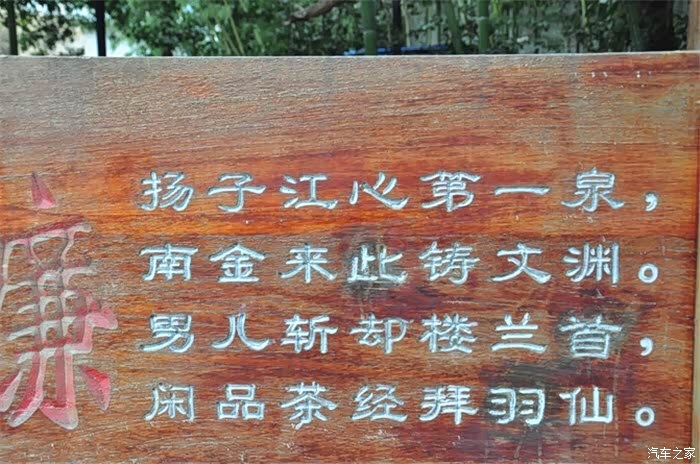 扬子江心第一泉，
南金来此铸文渊。
男儿斩却楼兰首，
闲品茶经拜羽仙。
廉
汽车之家